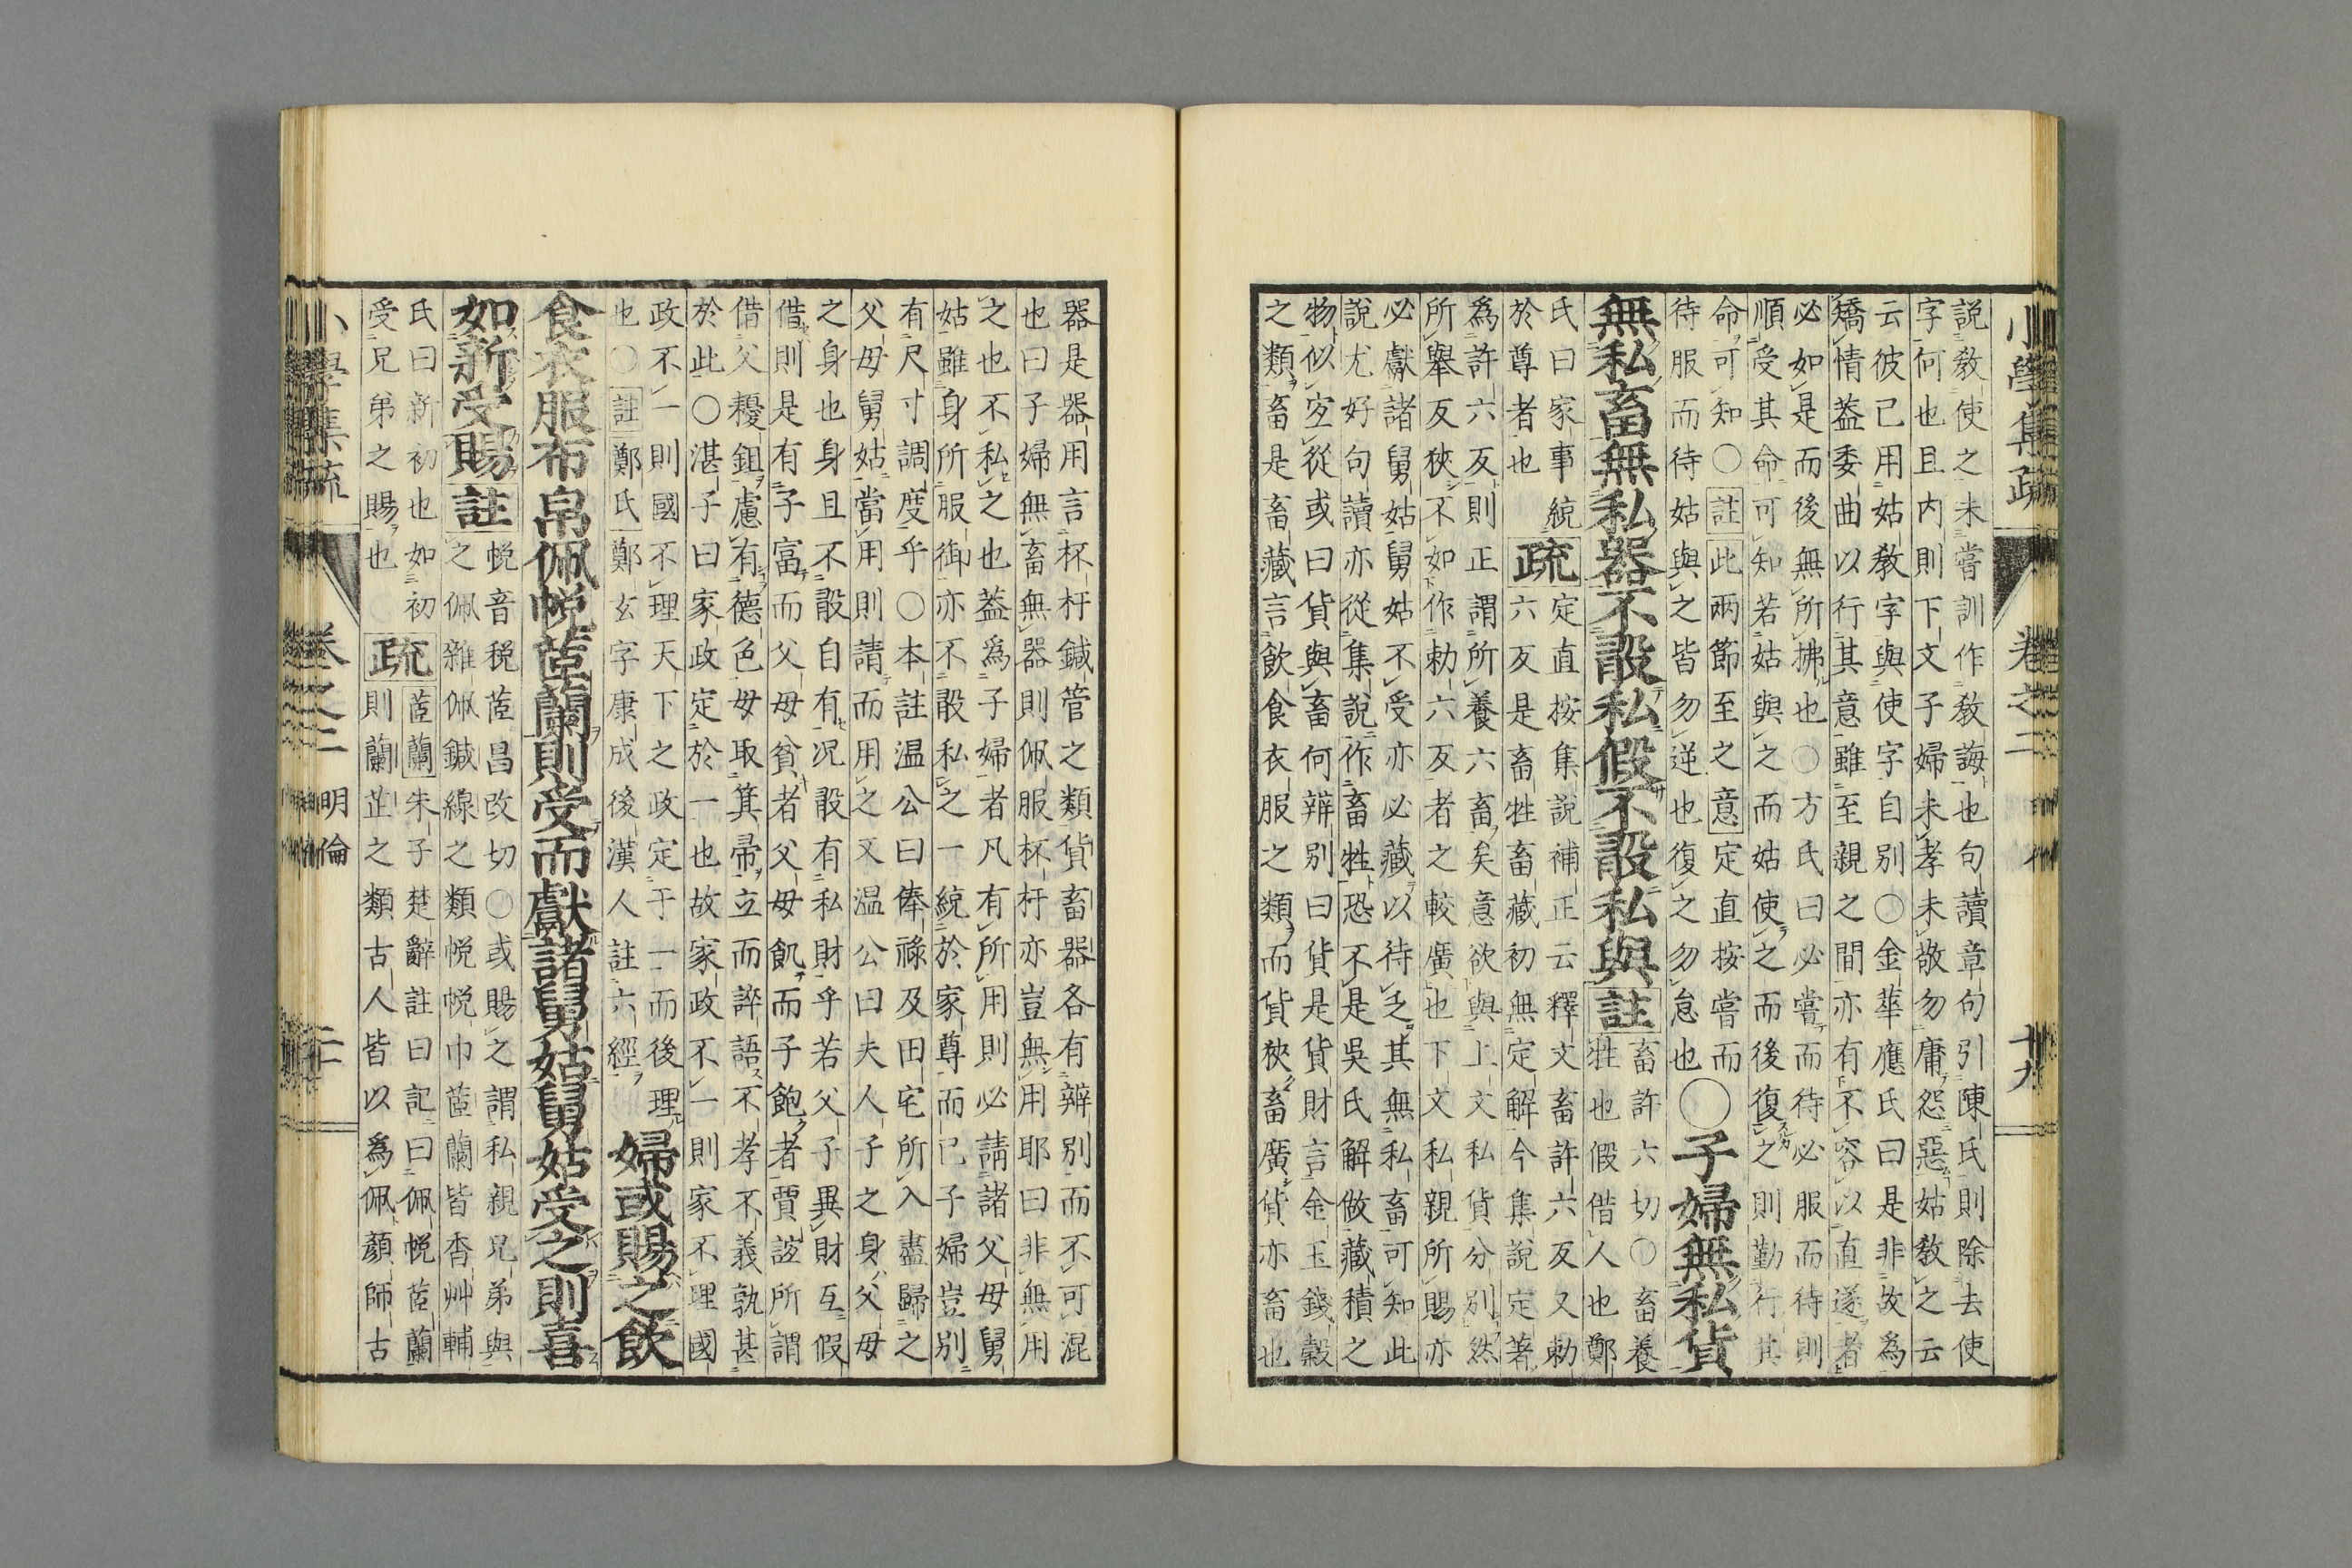 小學集疏 卷之二 十九
説教使之未嘗訓作教誨也句讀章句引陳氏則除去使
字何也且内則下文子婦未孝未敬勿庸怨惡姑教之云
云彼已用姑教字與使字自別〇金華應氏曰是非故為
矯情葢委曲以行其意雖至親之間亦有不容以直遂者
必如是而後無所拂也〇方氏曰必嘗而待必服而待則
順受其命可知若姑與之而姑使之而後復之則勤行其
命可知〇註此兩節至之意定直按嘗而
待服而待姑與之皆勿逆也復之勿怠也〇子婦無私貨
無私畜無私器不敢私假不敢私與註畜許六切〇畜養
牲也假借人也鄭
氏曰家事統
於尊者也疏定直按集説補正云釋文畜許六反又勅
六反是畜牲畜藏初無定解今集説定著
為許六反則正謂所養六畜矣意欲與上文私貨分別然
所舉反狹不如作勅六反者之較廣也下文私親所賜亦
必獻諸舅姑舅姑不受亦必藏以待乏其無私畜可知此
説尤好句讀亦從集説作畜牲恐不是吳氏解做藏積之
物似穵從或曰貨與畜何辨別曰貨是貨財言金玉錢穀
之類畜是畜藏言飲食衣服之類而貨狹畜廣貨亦畜也
器是器用言杯杅鍼管之類貨畜器各有辨別而不可混
也曰子婦無畜無器則佩服杯杅亦豈無用耶曰非無用
之也不私之也葢為子婦者凡有所用則必請諸父母舅
姑雖身所服御亦不敢私之一統於家尊而已子婦豈別
有尺寸調度乎〇本註温公曰俸祿及田宅所入盡歸之
父母舅姑當用則請而用之又温公曰夫人子之身父母
之身也身且不敢自有况敢有私財乎若父子異財互假
借則是有子富而父母貧者父母飢而子飽者賈誼所謂
借父耰鉏慮有德色母取箕帚立而誶語不孝不義孰甚
於此〇湛子曰家政定於一也故家政不一則家不理國
政不一則國不理天下之政定于一而後理
也〇註鄭氏鄭玄字康成後漢人註六經婦或賜之飲
食衣服布帛佩帨茝蘭則受而獻諸舅姑舅姑受之則喜
如新受賜註帨音税茝昌改切〇或賜之謂私親兄弟與
之佩雜佩鍼線之類帨帨巾茝蘭皆香艸輔
氏曰新初也如初
受兄弟之賜也疏茝蘭朱子楚辭註曰記曰佩帨茝蘭
則蘭芷之類古人皆以為佩顔師古
小學集疏 卷之二 明倫 二